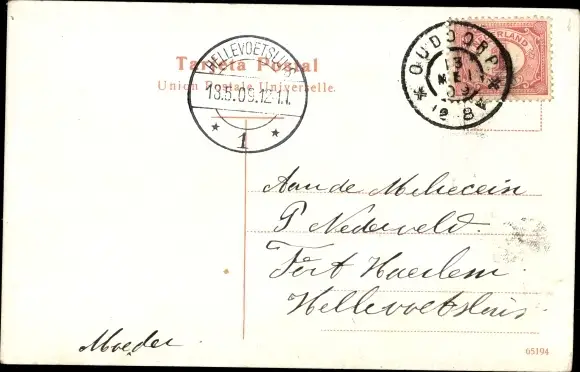 Tarjeta Postal
Union Postale Universelle.
HELLEVOETSLUIS
13.5.09.12-1.
1
OUDDORP
13
MEI
09
Aan de Milicein
P Nederveld.
Fort Haerlem.
Hellevoetsluis
Moeder
65194